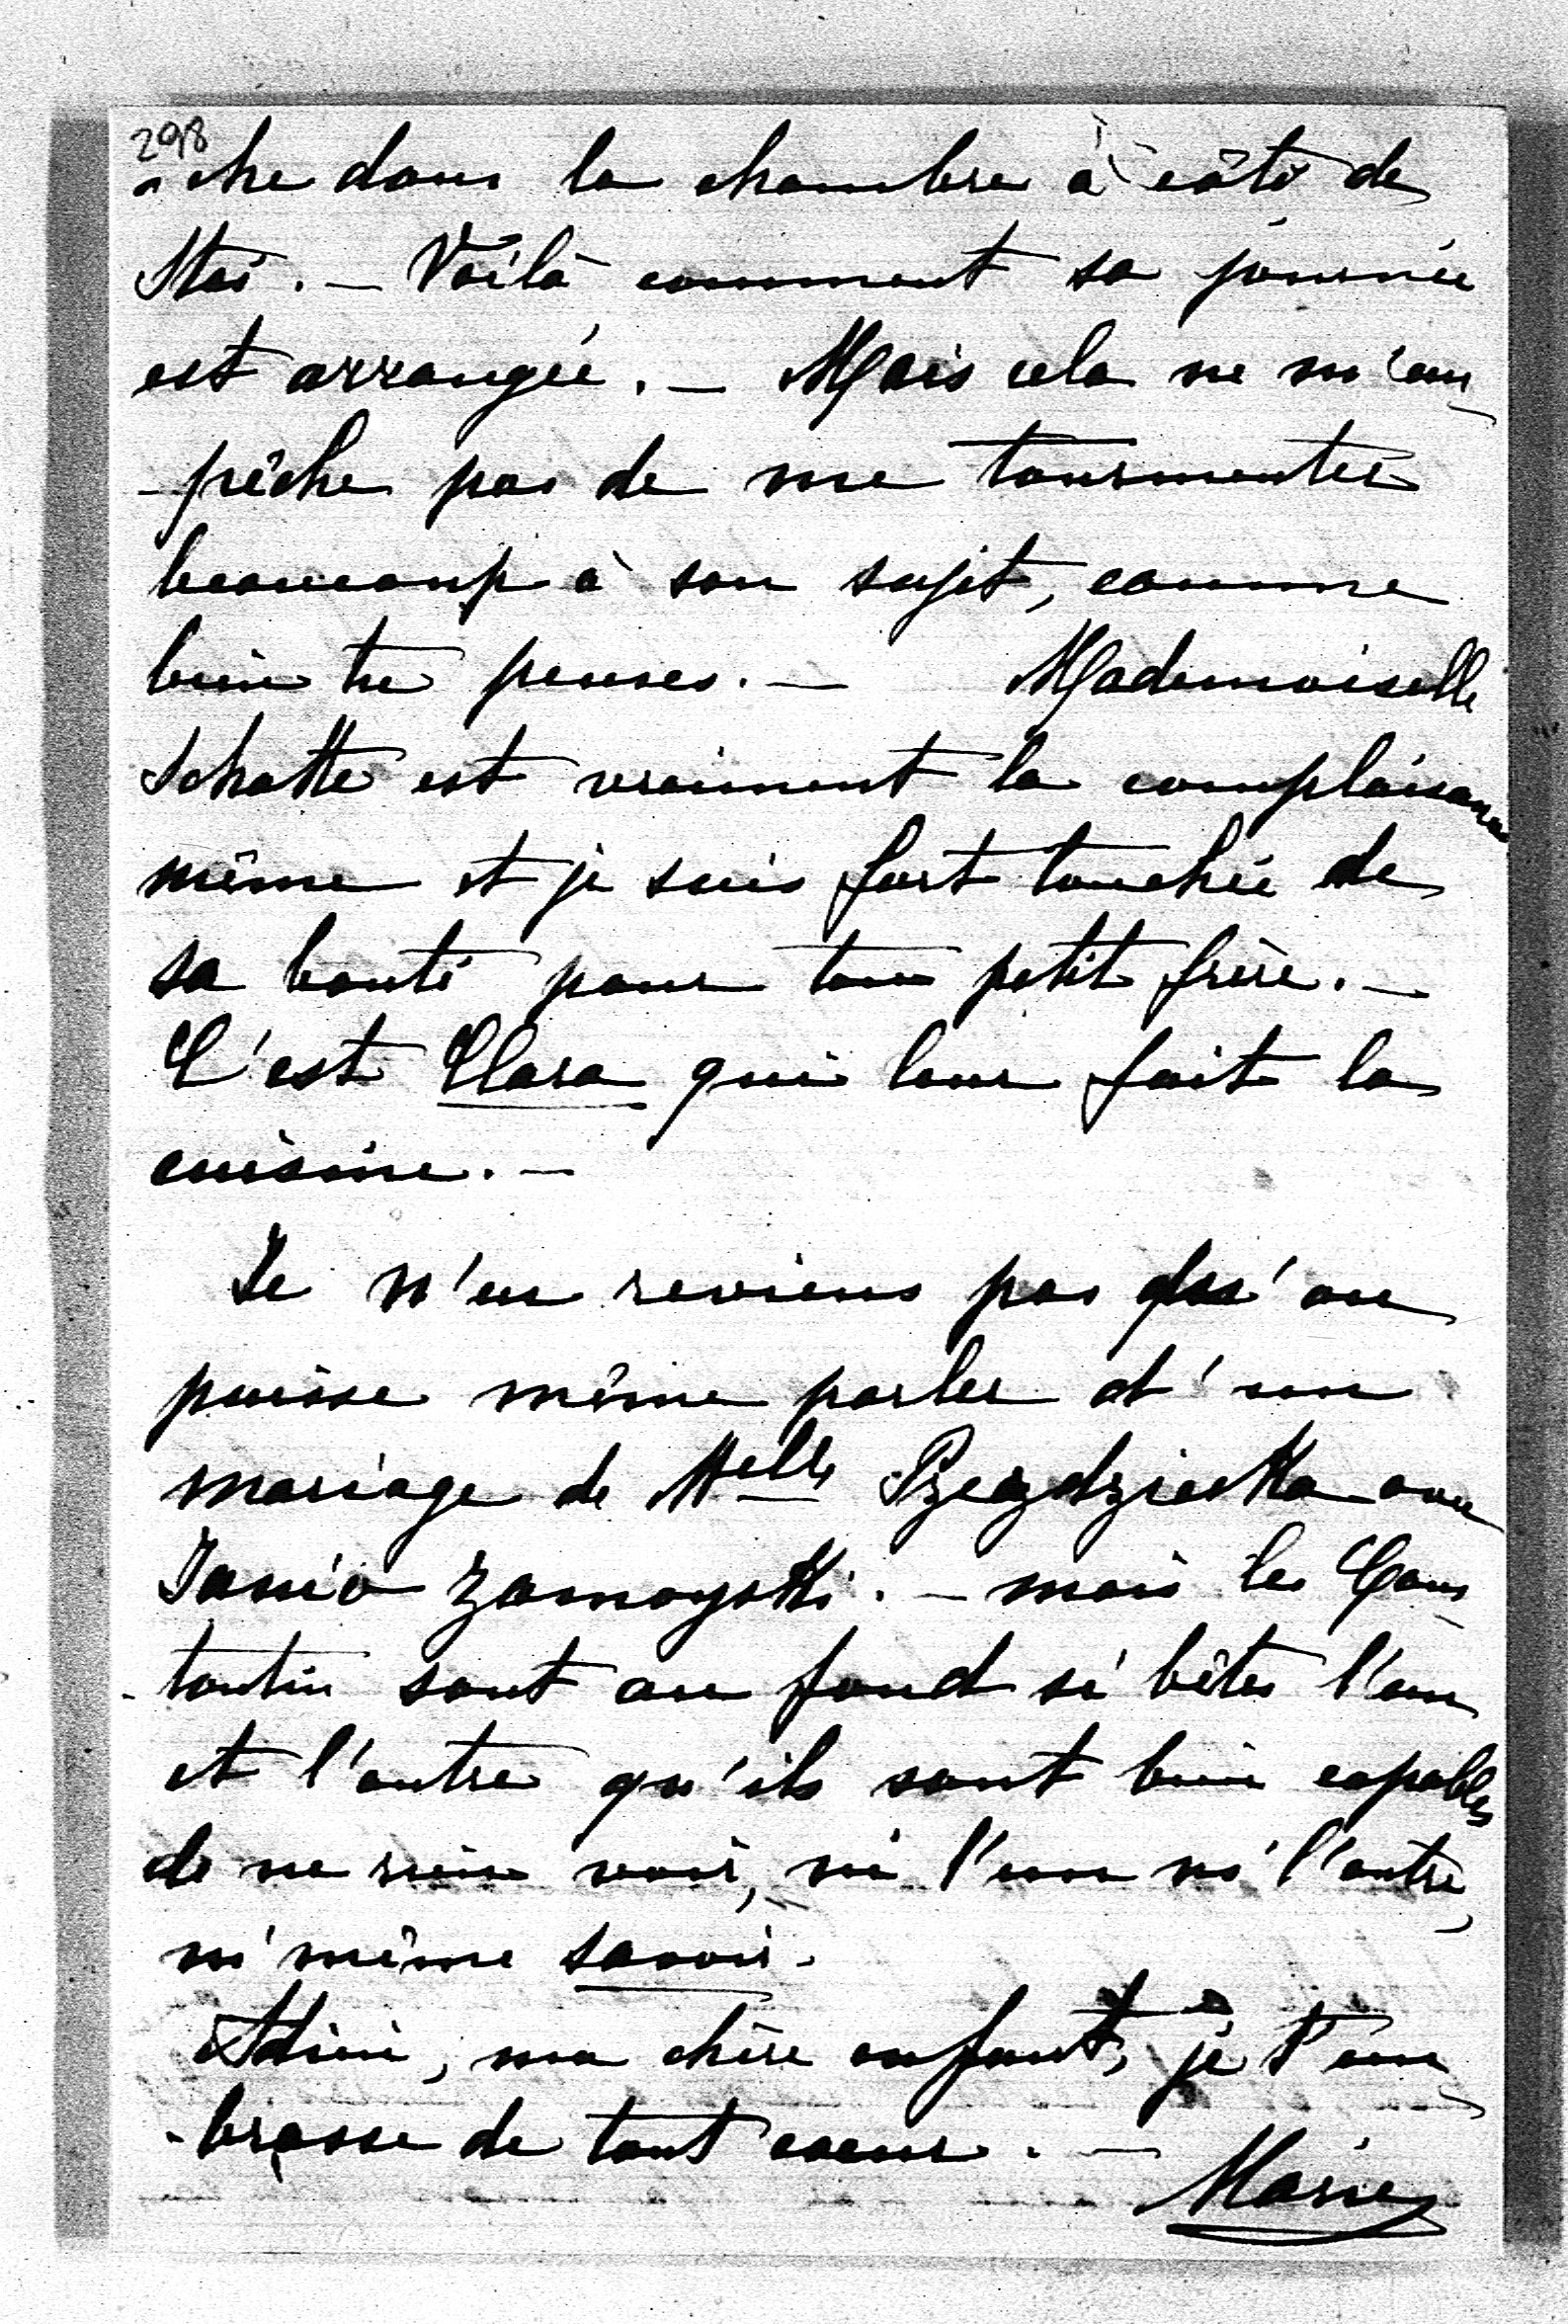 298
-che dans la chambre à côté de
Staś. — Voilà comment sa journée
est arrangée. — Mais cela ne m'em-
-pêche pas de me tourmenter
beaucoup à son sujet, comme
bien tu penses. — Mademoiselle
Schatte est vraiment la complaisance
même et je suis fort touchée de
sa bonté pour ton petit frère. —
C'est Clara qui leur fait la
cuisine. —
Je n'en reviens pas qu'on
puisse même parler d'un
mariage de Melle Pzezdziecka avec
Janio Zamoyski. — mais les Cons-
-tantin sont au fond si bêtes l'un
et l'autre qu'ils sont bien capables
de ne rien voir, ni l'un ni l'autre,
ni même savoir.
Adieu, ma chère enfant, je t'em-
-brasse de tout coeur. —
Marie